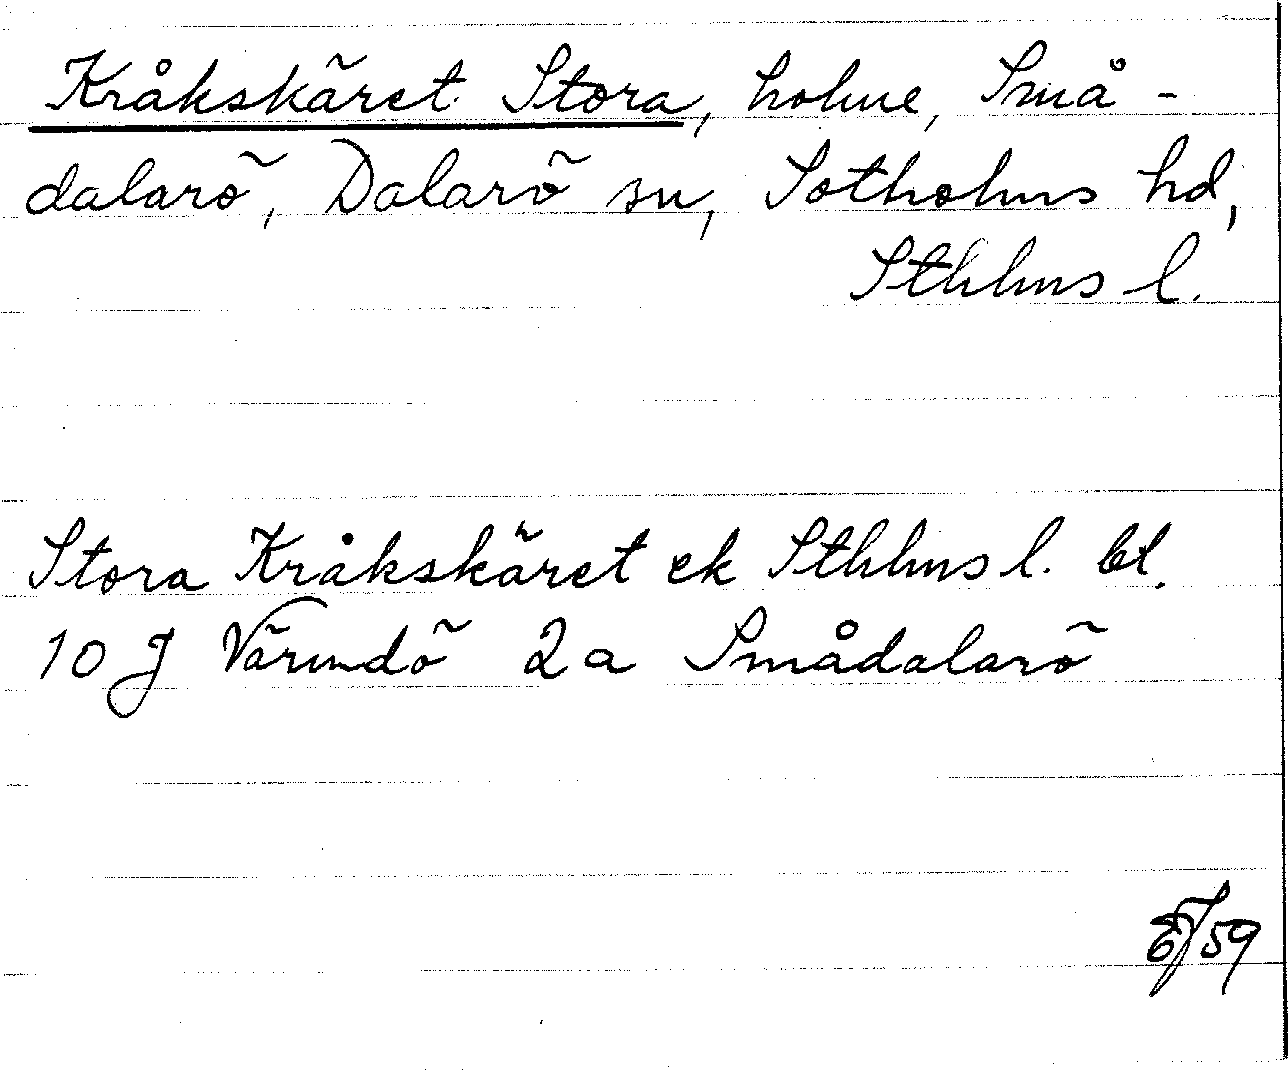 Kråkskäret Stora, holme, Små-
dalarö, Dalarö sn, Sotholms hd,
Sthlms l.
Stora Kråkskäret ek Sthlms l. bl.
10 J Värmdö 2a Smådalarö
/59